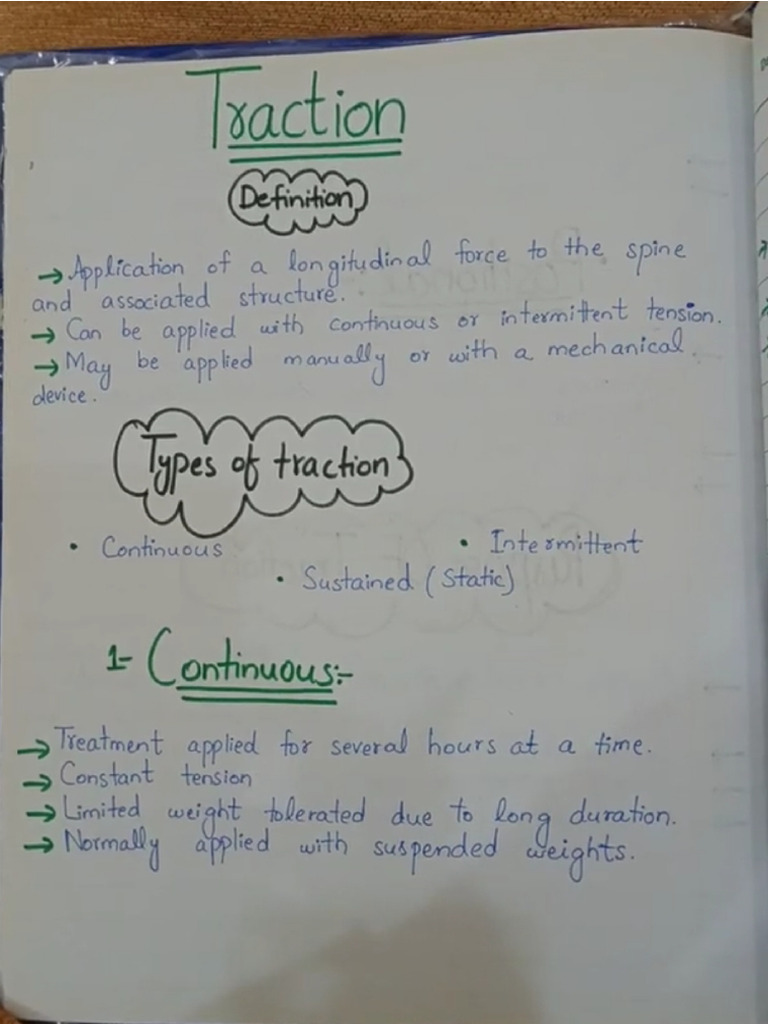 Traction
Definition
→ Application of a longitudinal force to the spine
and associated structure.
→ Can be applied with continuous or intermittent tension.
→ May be applied manually or with a mechanical
device.
Types of traction
• Continuous
• Intermittent
• Sustained (Static)
1- Continuous:-
→ Treatment applied for several hours at a time.
→ Constant tension
→ Limited weight tolerated due to long duration.
→ Normally applied with suspended weights.